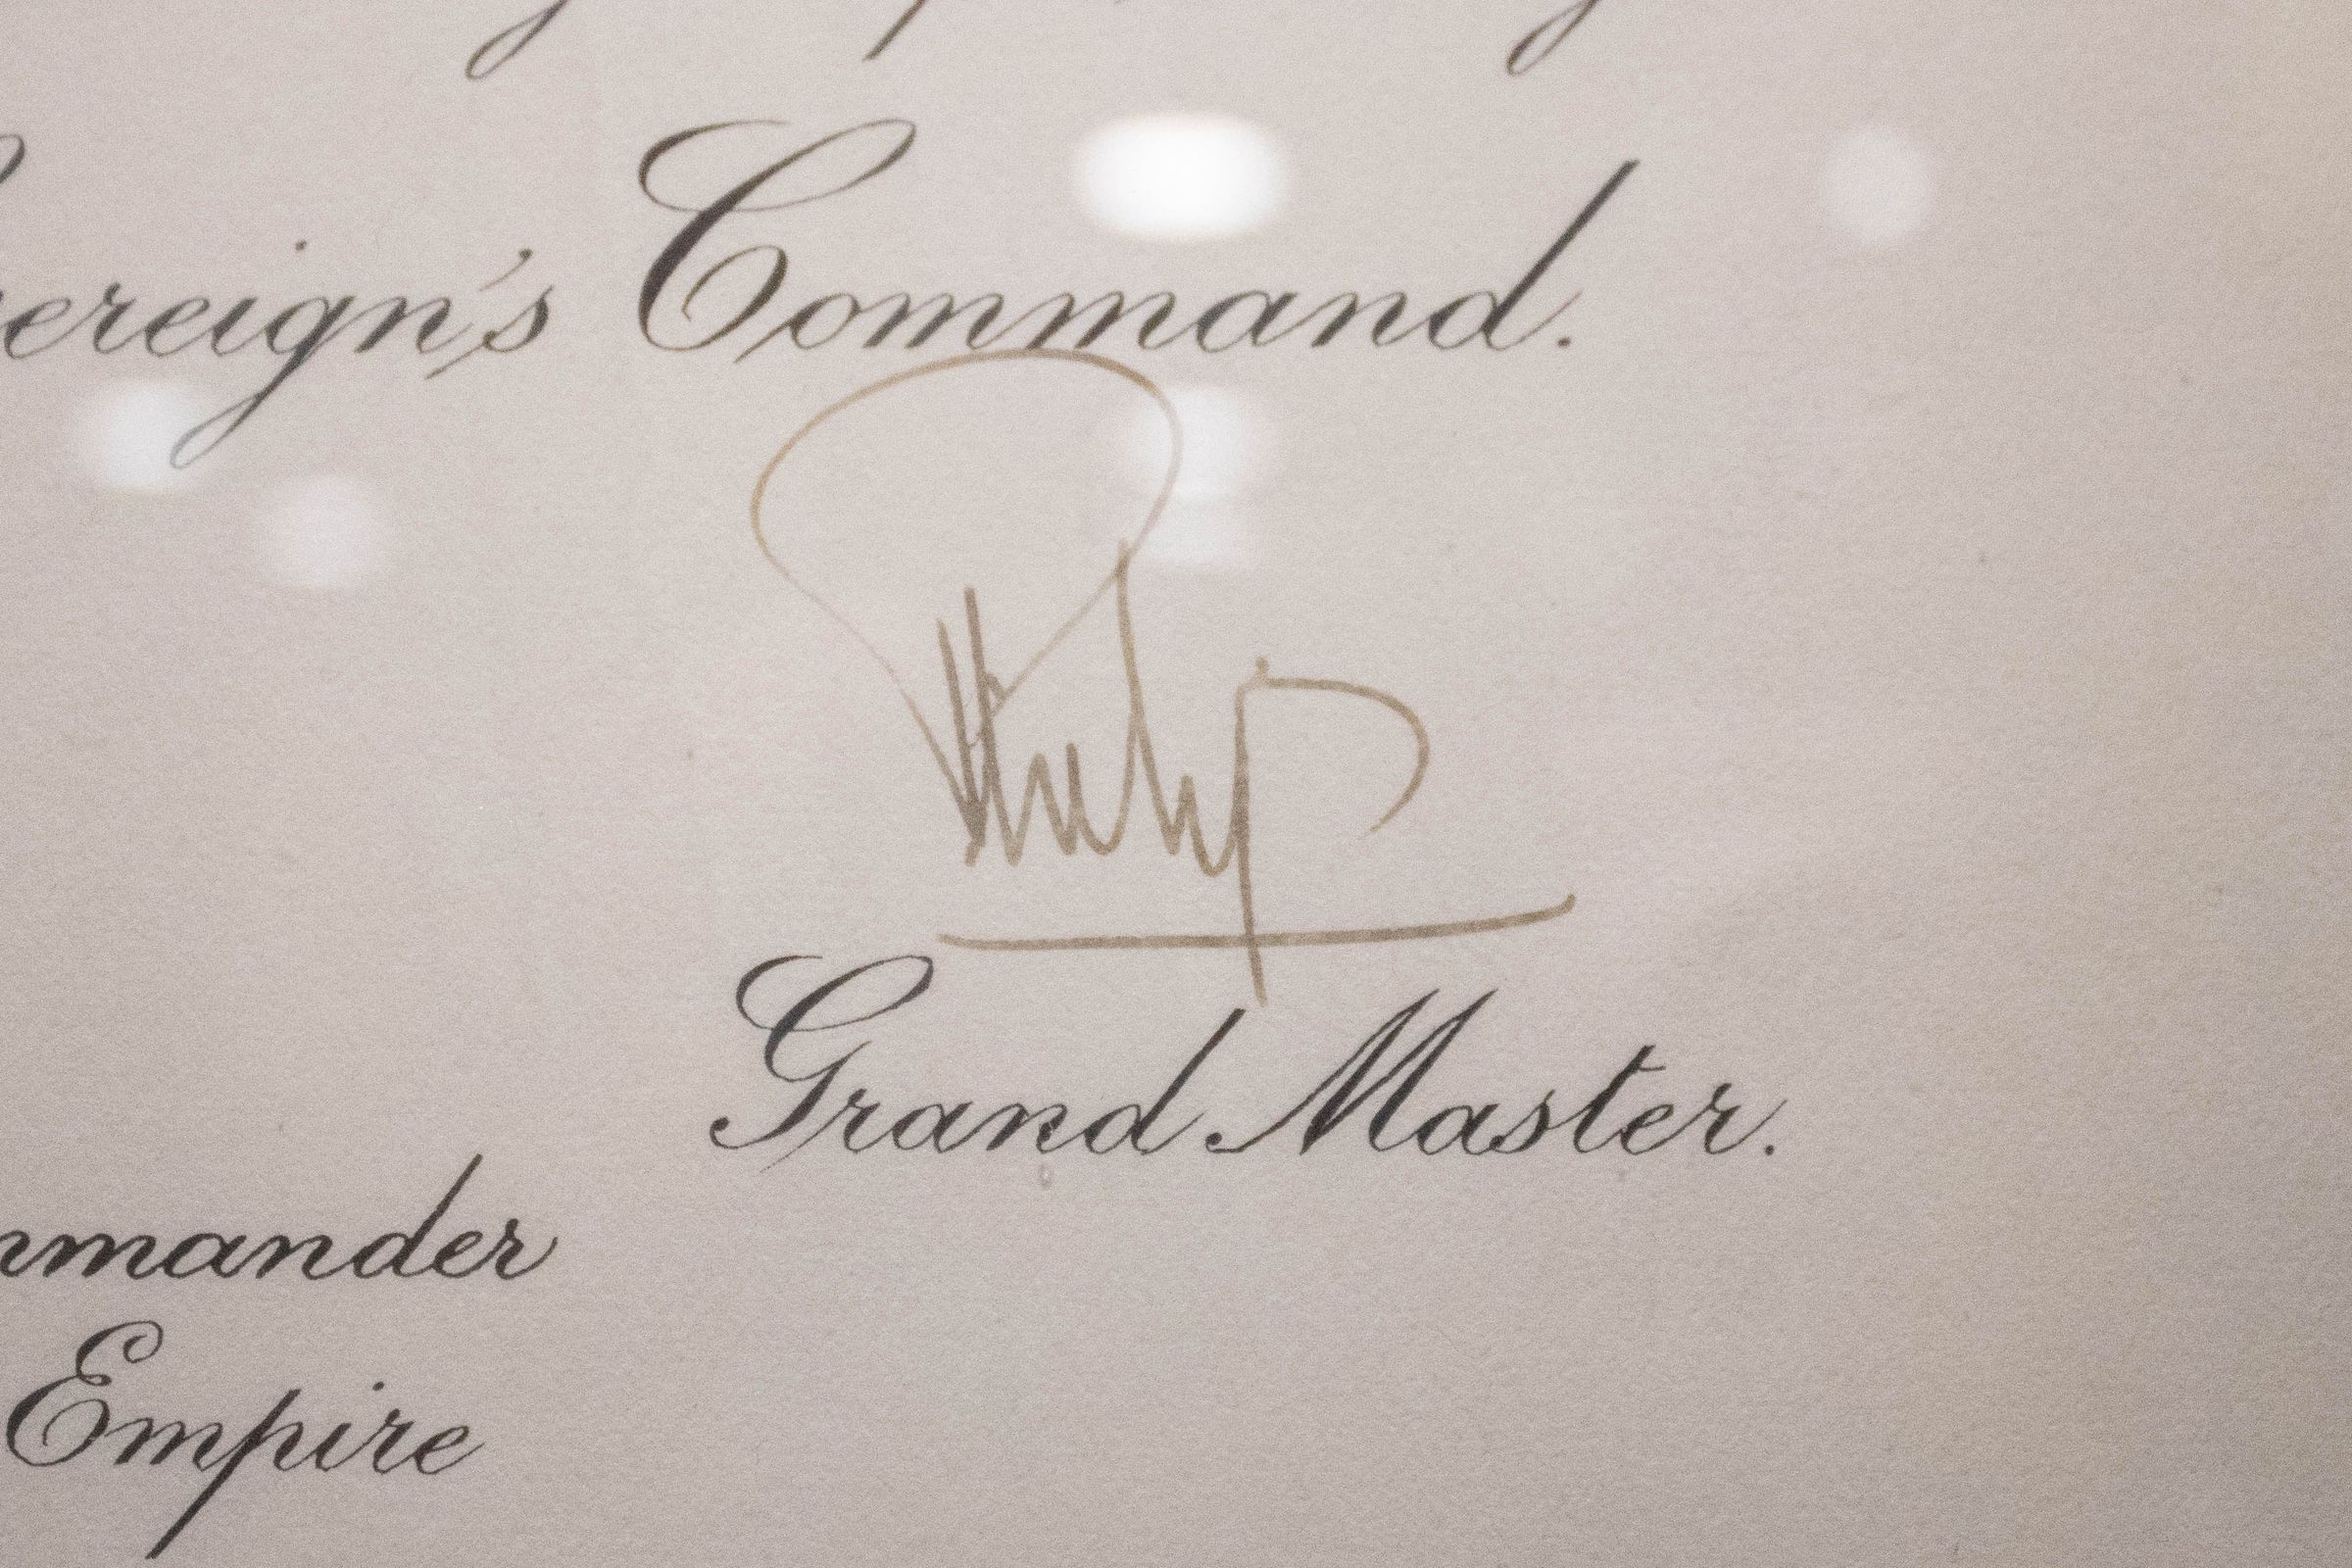 ereign's Command.
Philip
Grand Master.
mmander
Empire